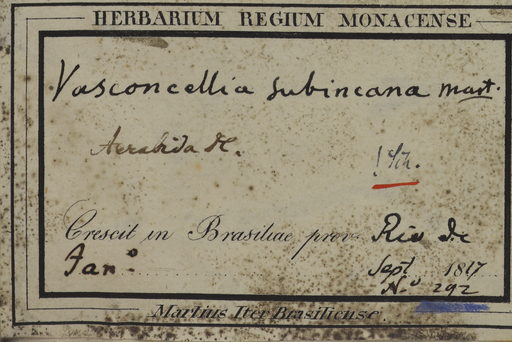 HERBARIUM REGIUM MONACENSE
Vasconcellia subincana mart.
Arrabida H.
! Sch.
Crescit in Brasiliae prov. Rio de
Jan.o
Sept 1817
N.o 292
Martius Iter Brasiliense.